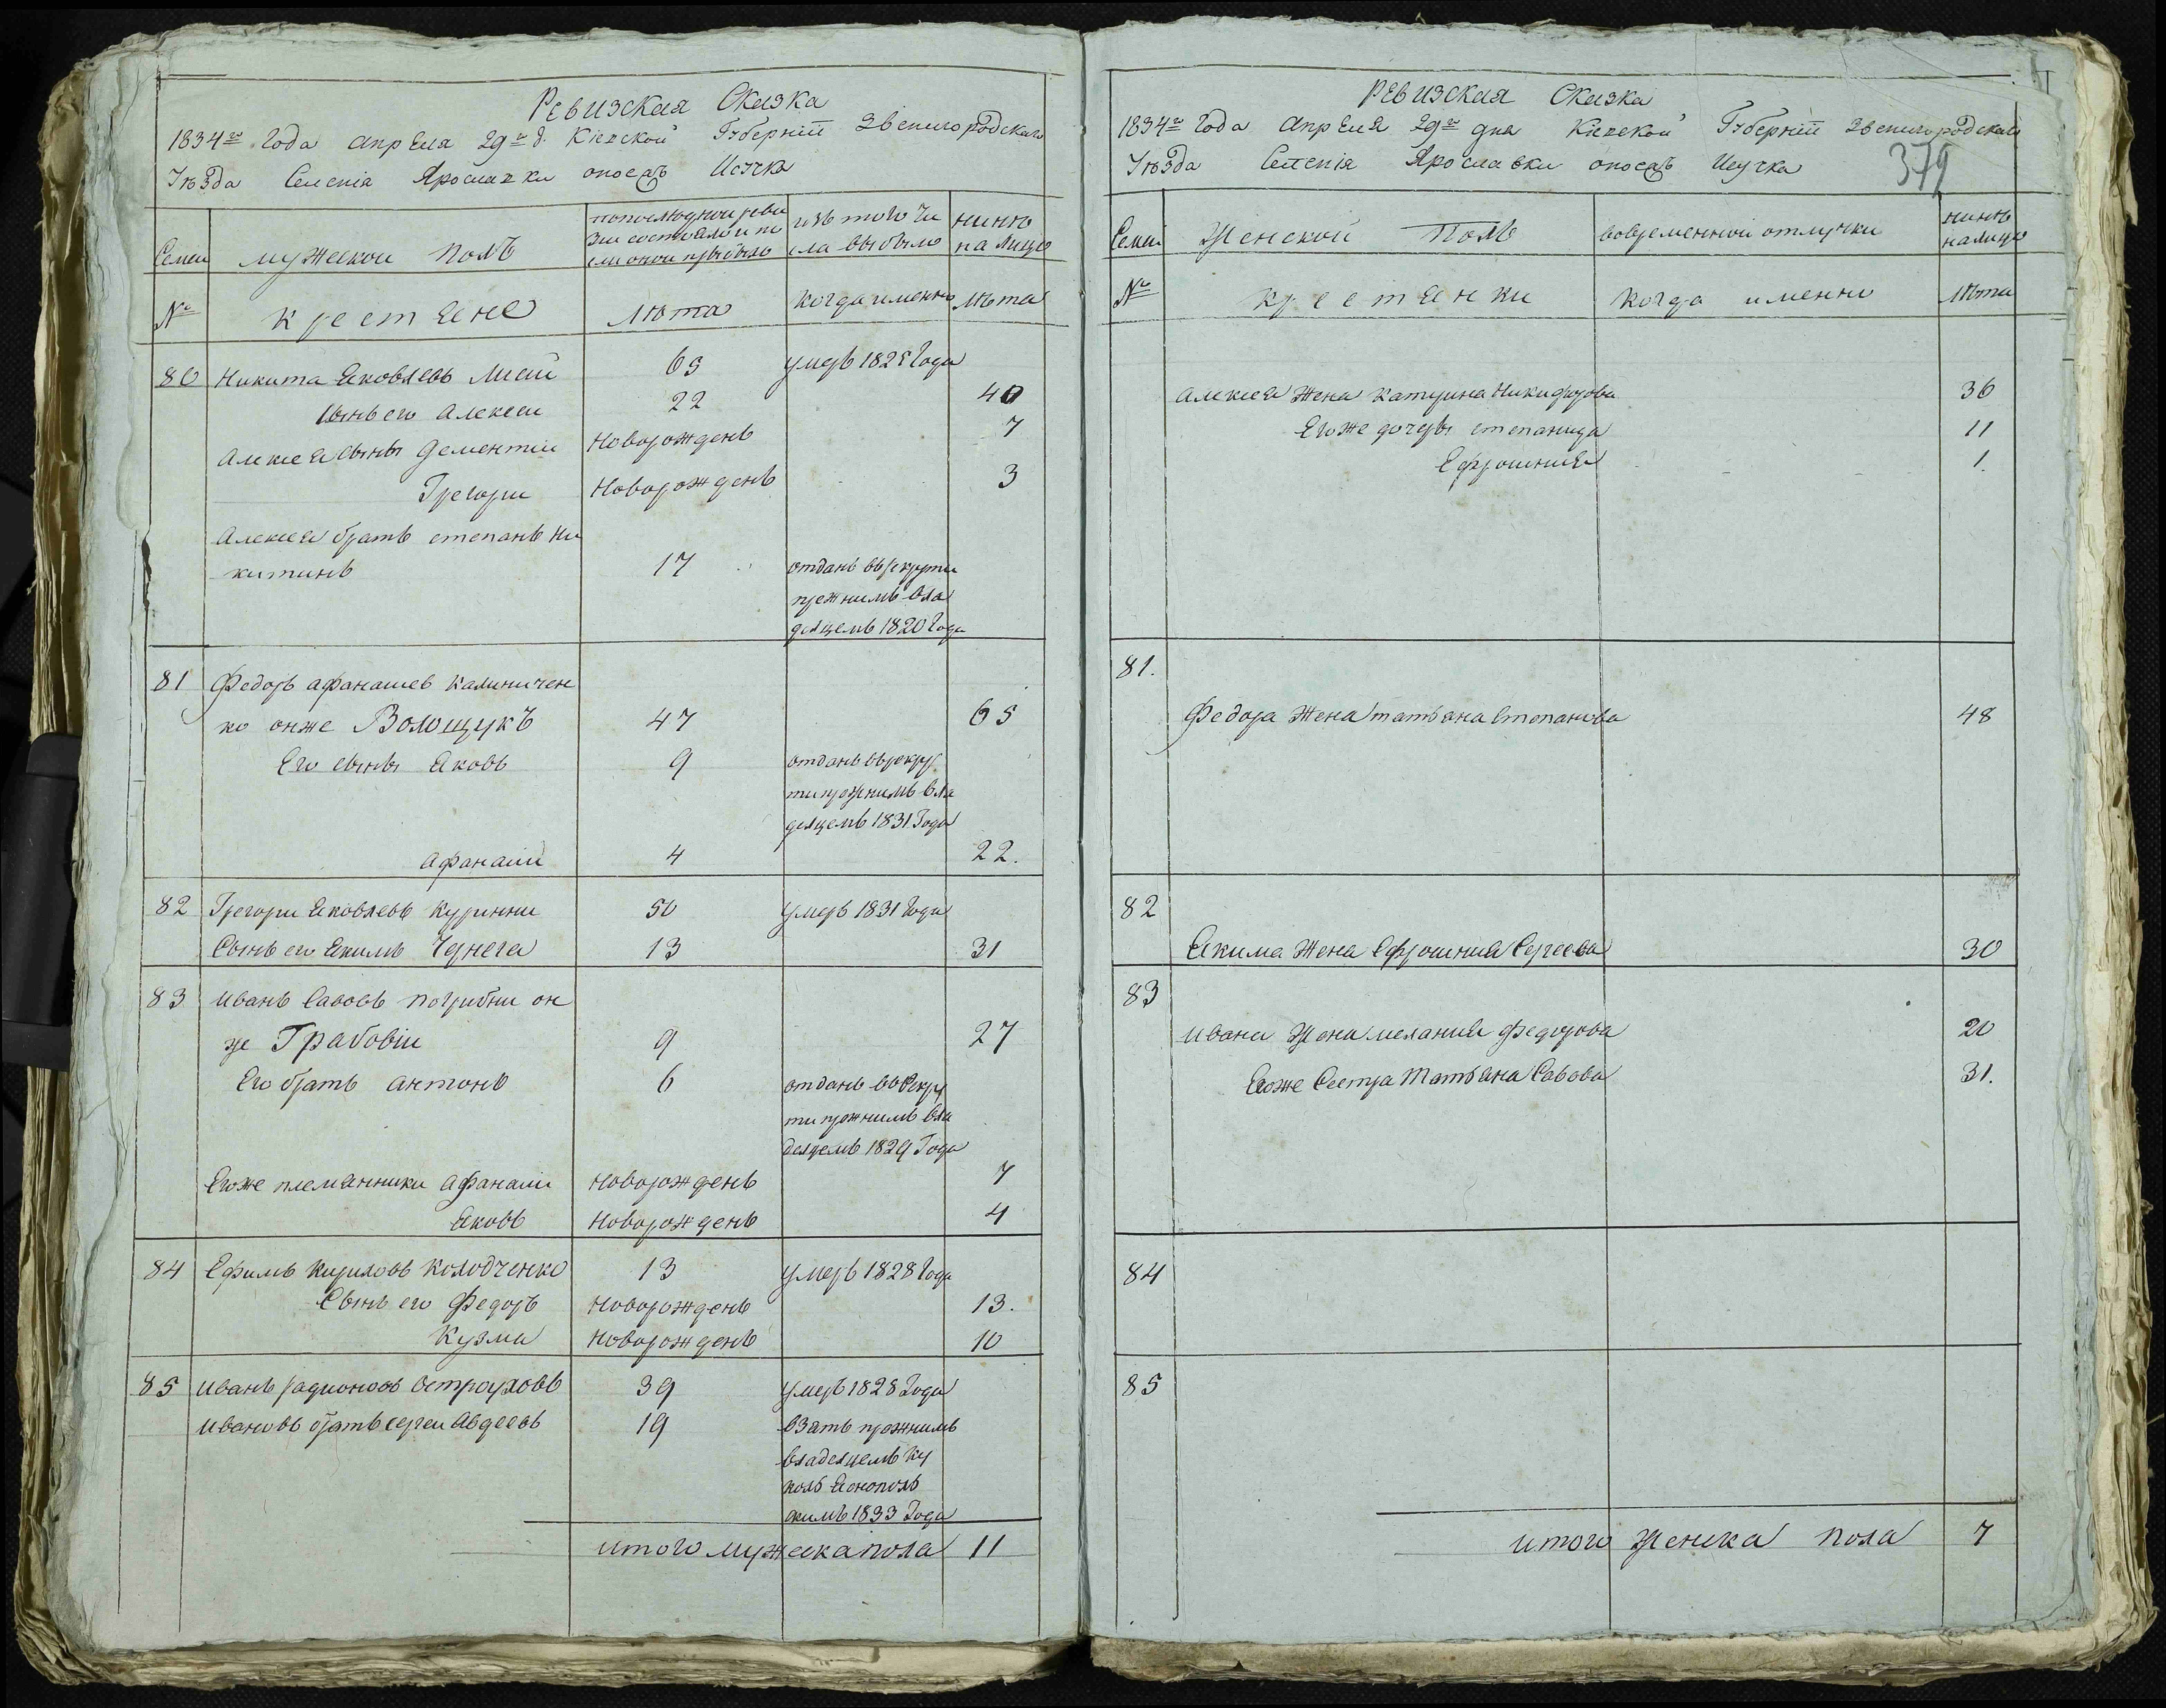 Ревизская Сказка
1834го Года Апреля 29го д. Кіевской Губерніи Звенигородскаго
Уѣзда Селенія Ярославки
Семьи
мужескои полъ
изъ того чи
сла выбыло
нинѣ
на лицо
№
крестяне
лѣта
когда именно
лѣта
80 Никита Яковлевъ 65 умеръ 1825 Года
Сынъ его Алексеи 22 40
Алексея сыны Дементии Новорожденъ 7
Грегори Новорожденъ 3
Алексея братъ степанъ Ни
китинъ 17 отданъ в рекруты
прежнимъ вла
делцемъ 1820 Года
81 Федоръ афанашев Калиничен
ко онже Волощукъ 47 65
Его сынъ Яковъ 9 отданъ в рекру
ти прежнимъ вла
делцемъ 1831 Года
афанаши 4 22.
82 Грегори Яковлевъ Куринни 50 умеръ 1831 Года
Сынъ его Якимъ Чернега 13 31
83 Иванъ Савовъ Погрибни он
же Грабовіи 9 27
Его братъ антонъ 6 отданъ въ Рекру
ти прежнимъ вла
делцемъ 1829 Года
Егоже племянники афанаши новорожденъ 7
Яковъ новорожденъ 4
84 Ефимъ Кириловъ Колодченко 13 умеръ 1828 Года
Сынъ его Федоръ новорожденъ 13.
Кузма новорожденъ 10
85 Иванъ радионовъ Остроуховъ 39 умеръ 1828 Года
Ивановъ братъ сергеи Авдеевъ 19 взятъ прежнимъ
владелцемъ
1833 Года
итого мужеска пола 11
Ревизская Сказка
1834го Года Апреля 29го дня Кіевской Губерніи Звенигородскаго
Уѣзда Селенія Ярославки
379
Семьи
Женской Полъ
вовременной отлучки
нинѣ
налицо
№
крестянки
когда именно
лѣта
Алексея Жена Катерина Никифорова 36
Егоже дочеры степанида 11
Ефрошиния 1.
81.
Федора Жена татьяна Степанова 48
82
Якима Жена Ефрошиния Сергеева 30
83
Ивана Жена мелания Федорова 20
Егоже Сестра Татьяна Савова 31.
84
85
итого женска пола 7